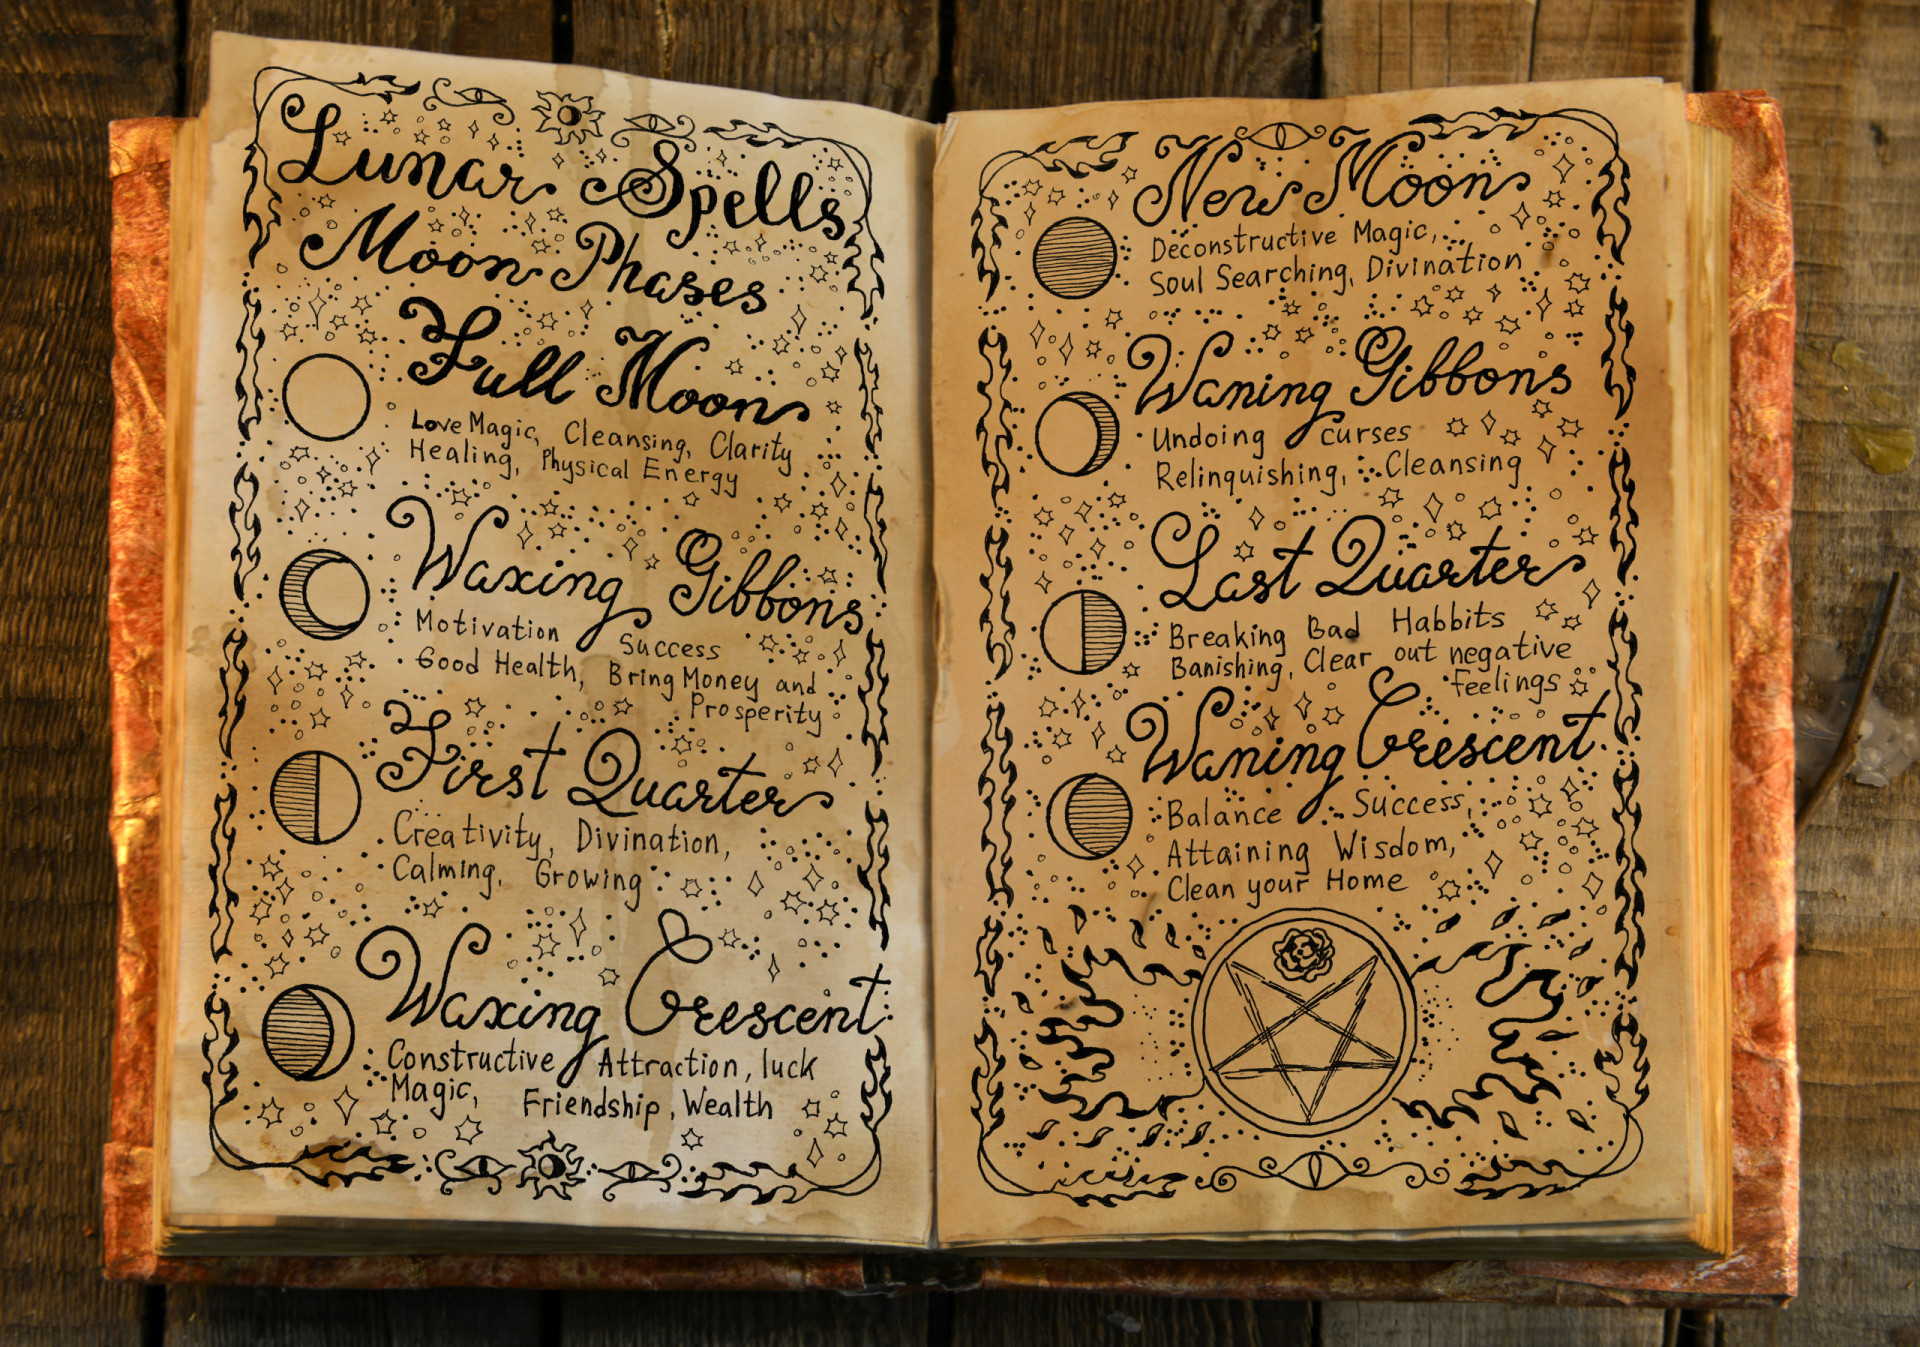 Lunar Spells
Moon Phases
Full Moon
Love Magic, Cleansing, Clarity
Healing, Physical Energy
Waxing Gibbons
Motivation Success
Good Health, Bring Money and
Prosperity
First Quarter
Creativity, Divination,
Calming, Growing
Waxing Crescent
Constructive Attraction, luck
Magic, Friendship, Wealth
New Moon
Deconstructive Magic,
Soul Searching, Divination
Waning Gibbons
Undoing curses
Relinquishing, Cleansing
Last Quarter
Breaking Bad Habbits
Banishing, Clear out negative
feelings
Waning Crescent
Balance Success,
Attaining Wisdom,
Clean your Home